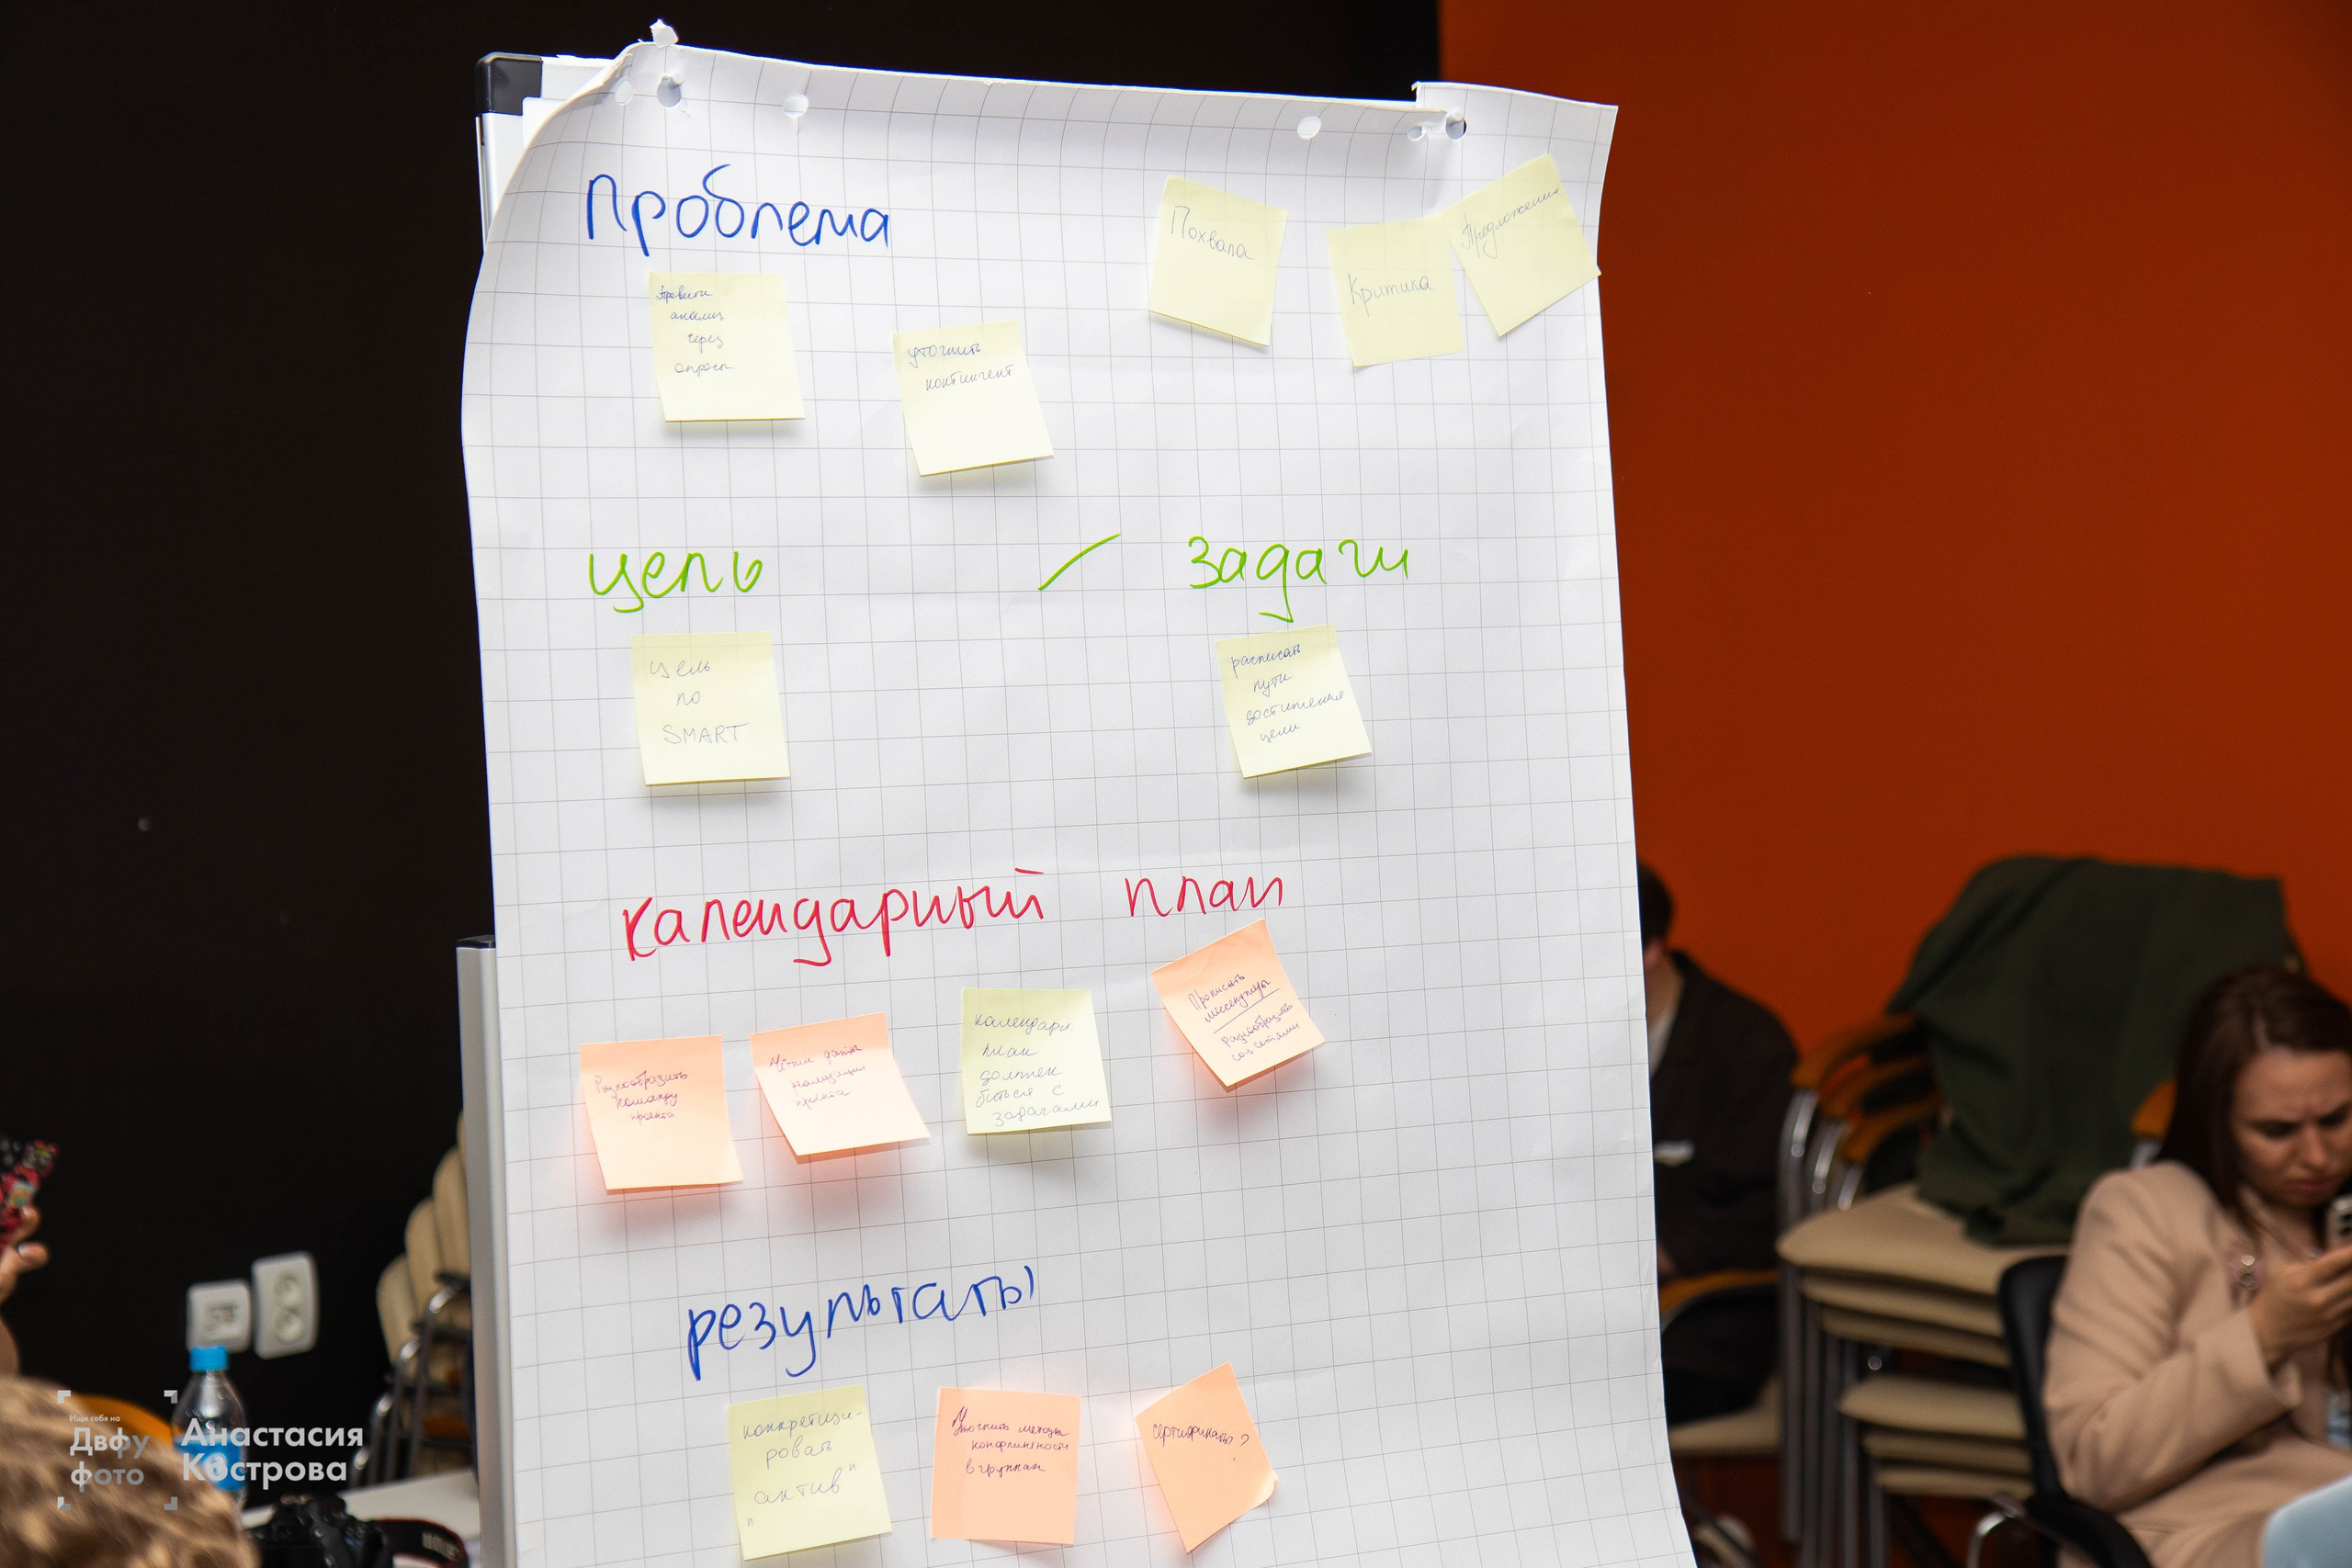 Проблема
Похвала
Критика
Предложения
анализ
через
опросы
уточнить
контингент
цель / задачи
цель
по
SMART
расписать
пути
достижения
цели
календарный план
Разнообразить
команду
проекта
Чёткие даты
реализации
проекта
календарн.
план
должен
биться с
задачами
Прописать
мессенджеры
Разнообразить
соц сетями
результаты
конкретизи-
ровать
"актив"
Уточнить методы
конфликтности
в группах
сертификаты?
Ищи себя на
Двфу
фото
Анастасия
Кострова